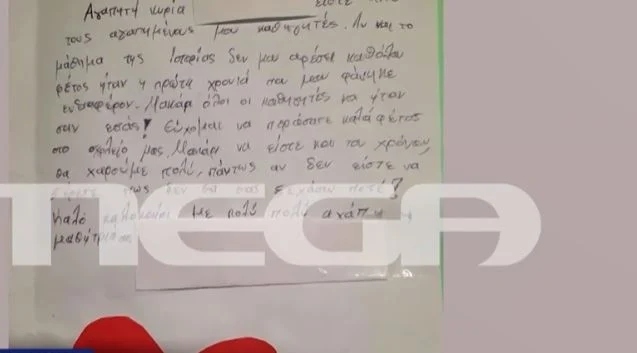 Αγαπητή κυρία είστε από
τους αγαπημένους μου καθηγητές. Αν και το
μάθημα της Ιστορίας δεν μου αρέσει καθόλου
φέτος ήταν η πρώτη χρονιά που μου φάνηκε
ενδιαφέρον. Μακάρι όλοι οι καθηγητές να ήταν
σαν εσάς! Εύχομαι να περάσατε καλά φέτος
στο σχολείο μας. Μακάρι να είστε και του χρόνου,
θα χαρούμε πολύ, πάντως αν δεν είστε να
ξέρετε πως δεν θα σας ξεχάσω ποτέ!
Καλό καλοκαίρι με πολύ πολύ αγάπη η
μαθήτριά σας
MEGA